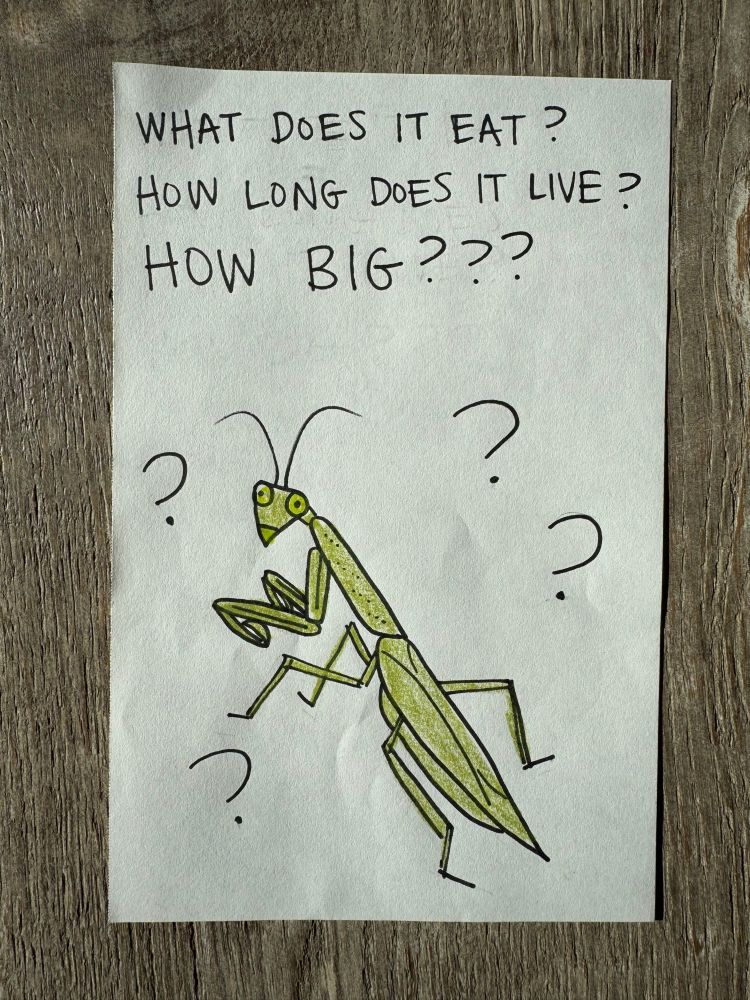 WHAT DOES IT EAT?
HOW LONG DOES IT LIVE?
HOW BIG???
?
?
?
?